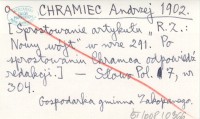 CHRAMIEC Andrzej 1902.
[Sprostowanie artykułu „R.Z.:
Nowy wójt" w nrze 291. Po
sprostowaniu Chramca odpowiedź
redakcji.] — Słowo Pol. 7, nr
304.
Gospodarka gminna Zakopanego.